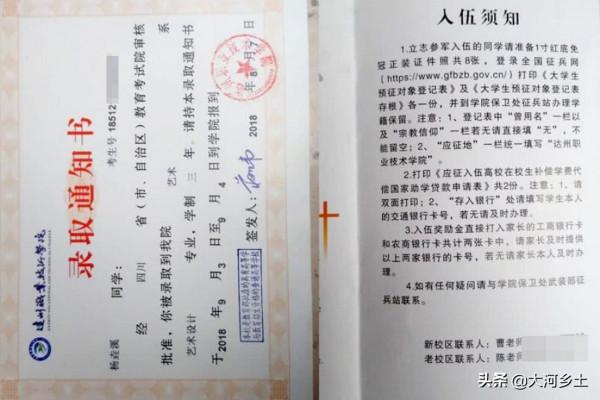 达州职业技术学院
录取通知书
考生号 18512
杨垚溪 同学：
经 四川 省（市、自治区）教育考试院审核
批准，你被录取到我院 艺术
艺术设计 专业，学制 三 年。请持本录取通知书
于2018年9月3日至9月4日到学院报到
签发人：
2018年8月7日
入伍须知
1.立志参军入伍的同学请准备1寸红底免
冠正装证件照共8张，登录全国征兵网
(https://www.gfbzb.gov.cn/)打印《大学生
预征对象登记表》及《大学生预征对象登记表
存根》各一份，并到学院保卫处征兵站办理学
籍保留。注意：1、登记表中“曾用名”一栏以
及“宗教信仰”一栏若无请直接填“无”，不
能留空；2、“应征地”一栏统一填写“达州职
业技术学院”。
2.打印《应征入伍高校在校生补偿学费代
偿国家助学贷款申请表》共2份。注意：1、请
双面打印；2、“存入银行”处请填写学生本人
的交通银行卡号，若无请及时办理。
3.入伍奖励金直接打入家长的工商银行卡
和农商银行卡共计两张卡中。请家长及时提供
以上两家银行的卡号，若无请家长本人及时办
理。
4.如有任何疑问请与学院保卫处武装部征
兵站联系。
新校区联系人：曹老师
老校区联系人：陈老
头条 @大河乡土